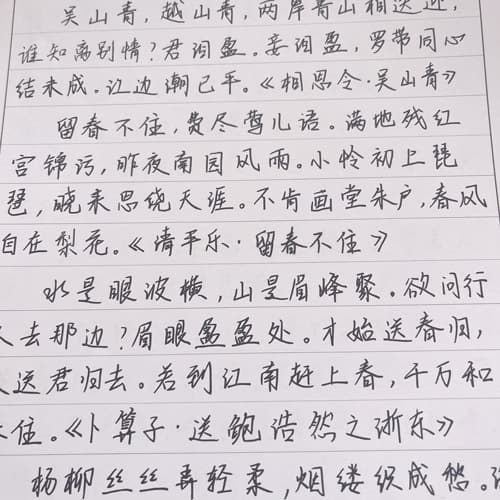 吴山青,越山青,两岸青山相送迎,
谁知离别情?君泪盈。妾泪盈,罗带同心
结未成。江边潮已平。《相思令·吴山青》
留春不住,费尽莺儿语。满地残红
宫锦污,昨夜南园风雨。小怜初上琵
琶,晓来思绕天涯。不肯画堂朱户,春风
自在梨花。《清平乐·留春不住》
水是眼波横,山是眉峰聚。欲问行
人去那边?眉眼盈盈处。才始送春归,
又送君归去。若到江南赶上春,千万和
住。《卜算子·送鲍浩然之浙东》
杨柳丝丝弄轻柔,烟缕织成愁。